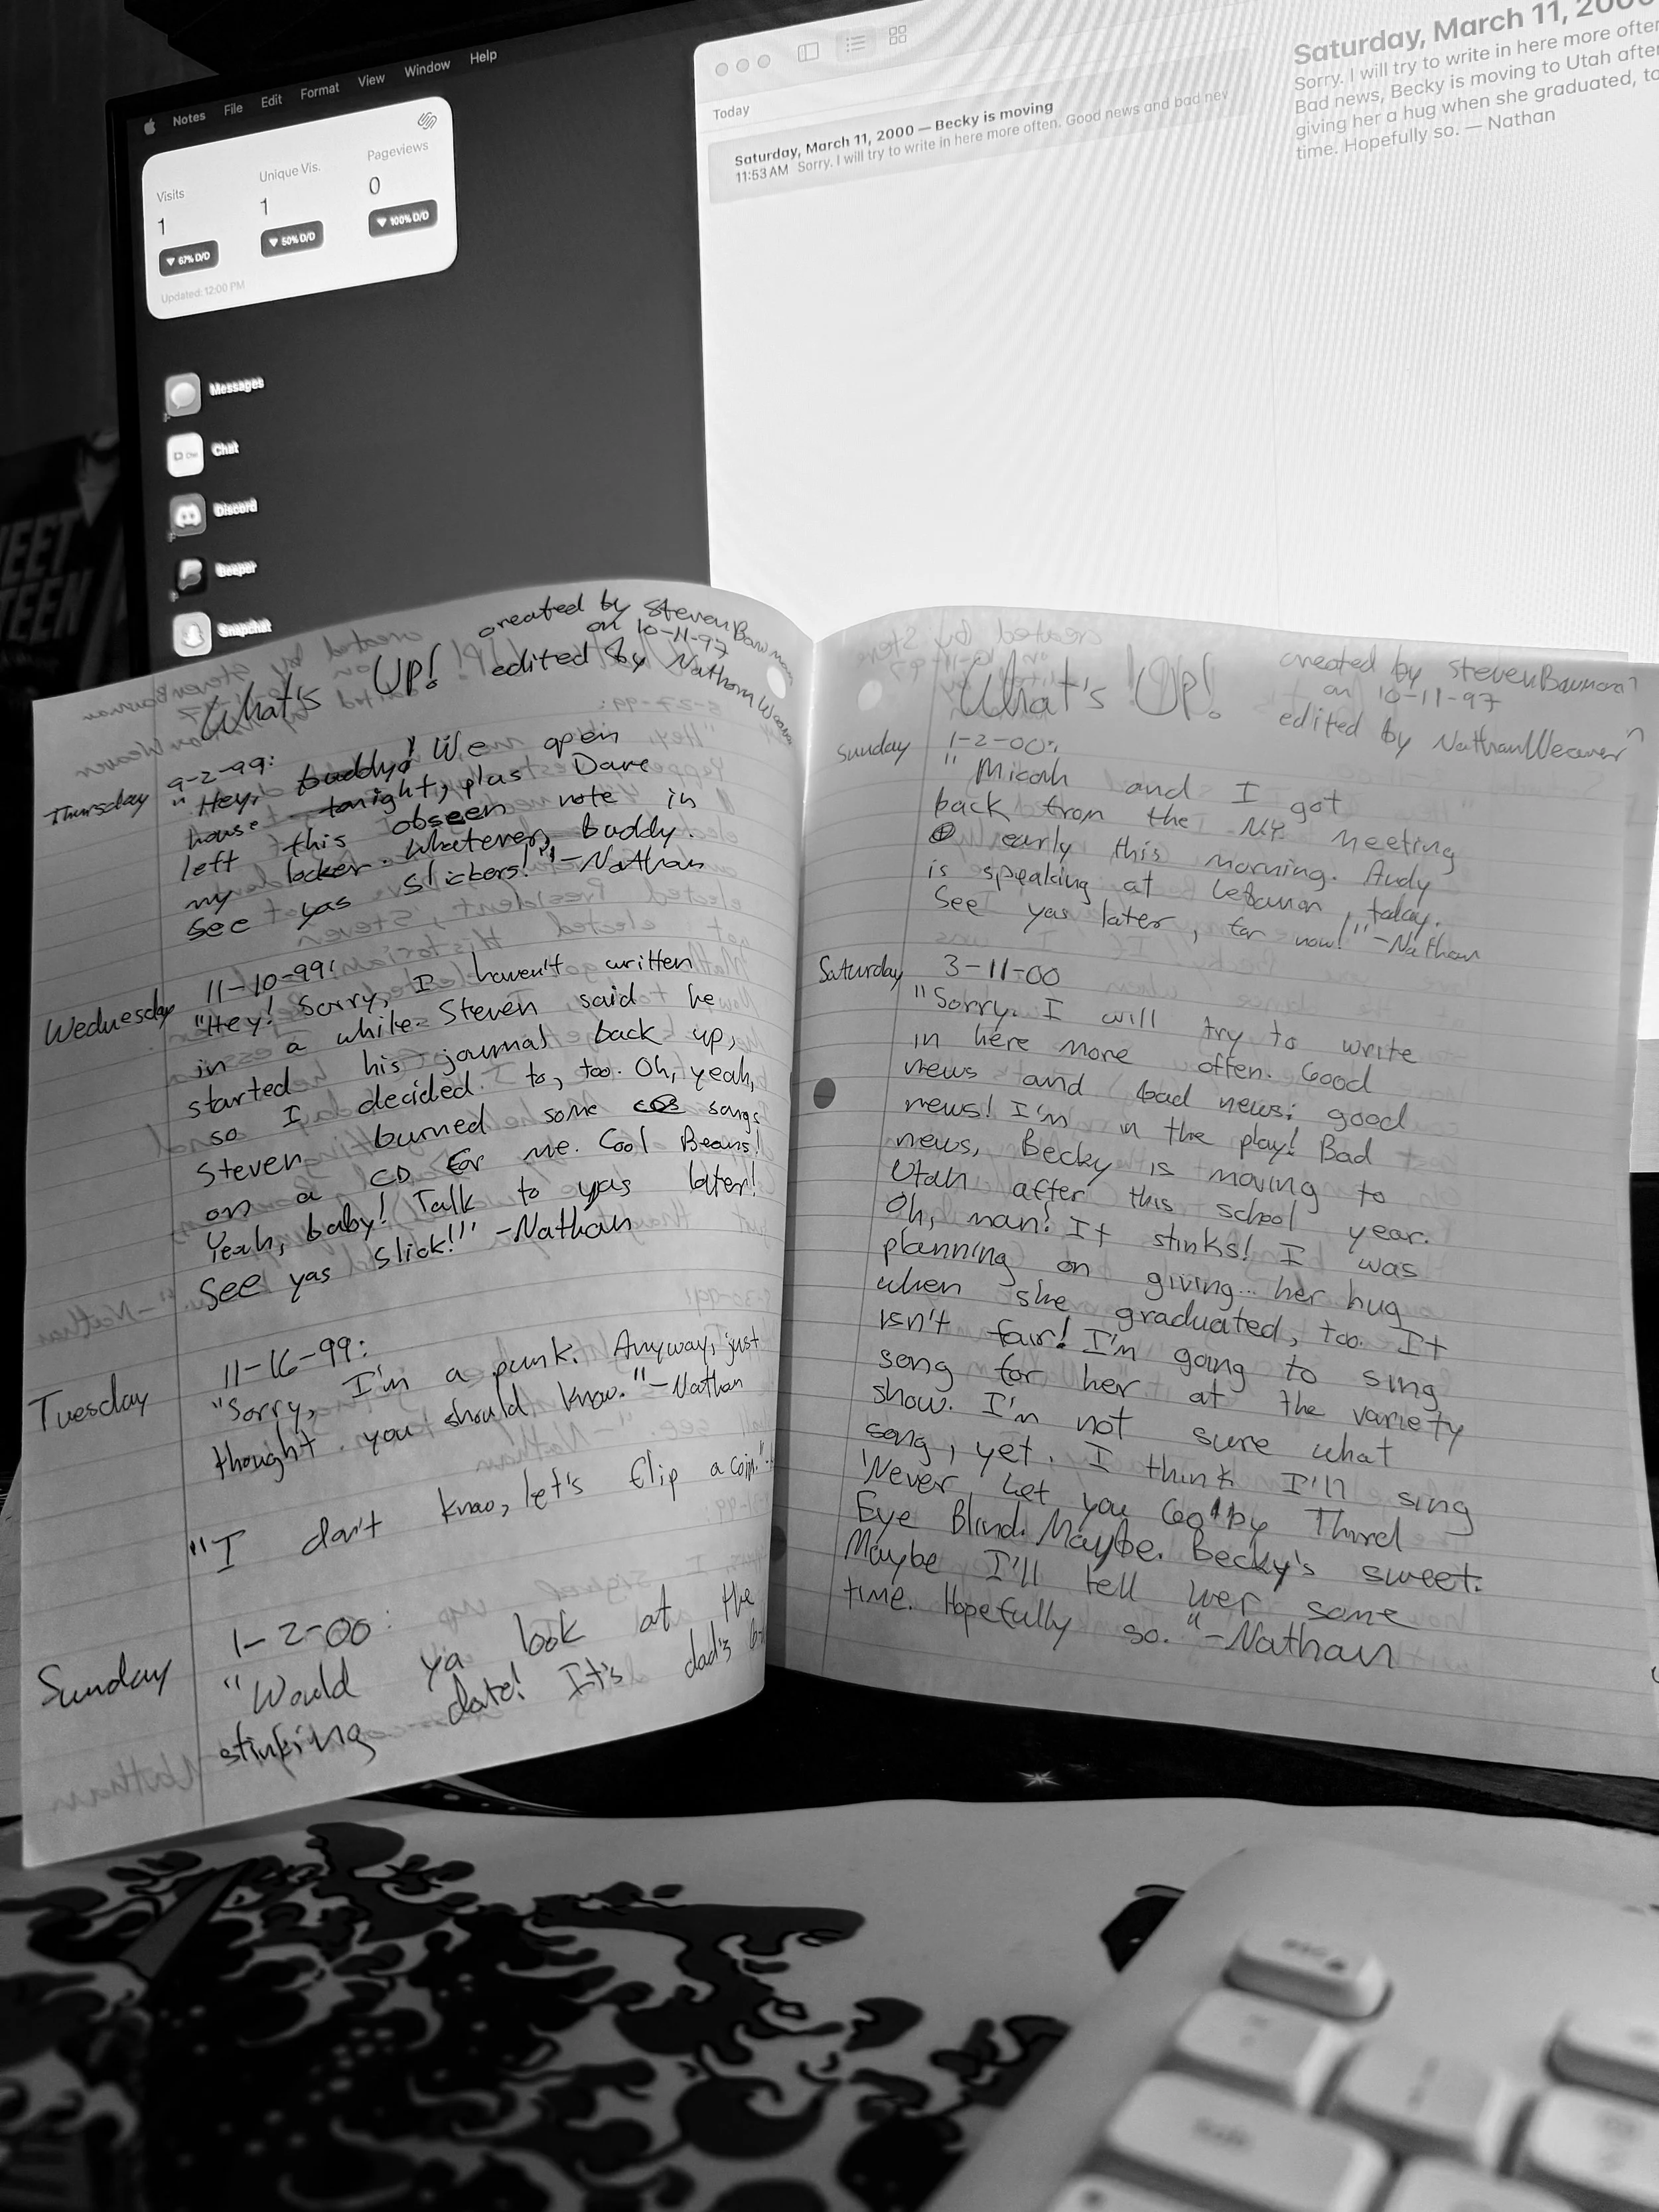 Notes File Edit Format View Window Help
Visits
1
67% D/D
Unique Vis.
1
50% D/D
Pageviews
0
100% D/D
Updated: 12:00 PM
Messages
Chat
Discord
Beeper
Snapchat
Today
Saturday, March 11, 2000 — Becky is moving
11:53 AM Sorry. I will try to write in here more often. Good news and bad nev
Saturday, March 11, 2000
Sorry. I will try to write in here more ofte
Bad news, Becky is moving to Utah afte
giving her a hug when she graduated, to
time. Hopefully so. — Nathan
What's UP!
created by Steven
on 10-11-97
edited by Nathan
Thursday
9-2-99:
"Hey, buddy! We open
house tonight, plus Dave
left this obseen note in
my locker. Whatever, buddy.
See yas slickers!" -Nathan
Wednesday
11-10-99:
"Hey! Sorry, I haven't written
in a while. Steven said he
started his journal back up,
so I decided to, too. Oh, yeah,
Steven burned some songs
on a CD for me. Cool Beans!
Yeah, baby! Talk to yas later!
See yas slick!" -Nathan
Tuesday
11-16-99:
"Sorry, I'm a punk. Anyway, just
thought you should know." -Nathan
"I don't know, let's flip a coin."
Sunday
1-2-00:
"Would ya look at the
stinking date! It's dad's
What's UP!
created by Steven
on 10-11-97
edited by Nathan Weaver
Sunday
1-2-00:
"Micah and I got
back from the NY meeting
early this morning. Andy
is speaking at Lebanon, today.
See yas later, for now!" -Nathan
Saturday
3-11-00
"Sorry. I will try to write
in here more often. Good
news and bad news: good
news! I'm in the play! Bad
news, Becky is moving to
Utah after this school year.
Oh, man! It stinks! I was
planning on giving her hug
when she graduated, too. It
isn't fair! I'm going to sing
song for her at the variety
show. I'm not sure what
song, yet. I think I'll sing
'Never Let you Go' by Third
Eye Blind. Maybe. Becky's sweet.
Maybe I'll tell her some
time. Hopefully so." -Nathan